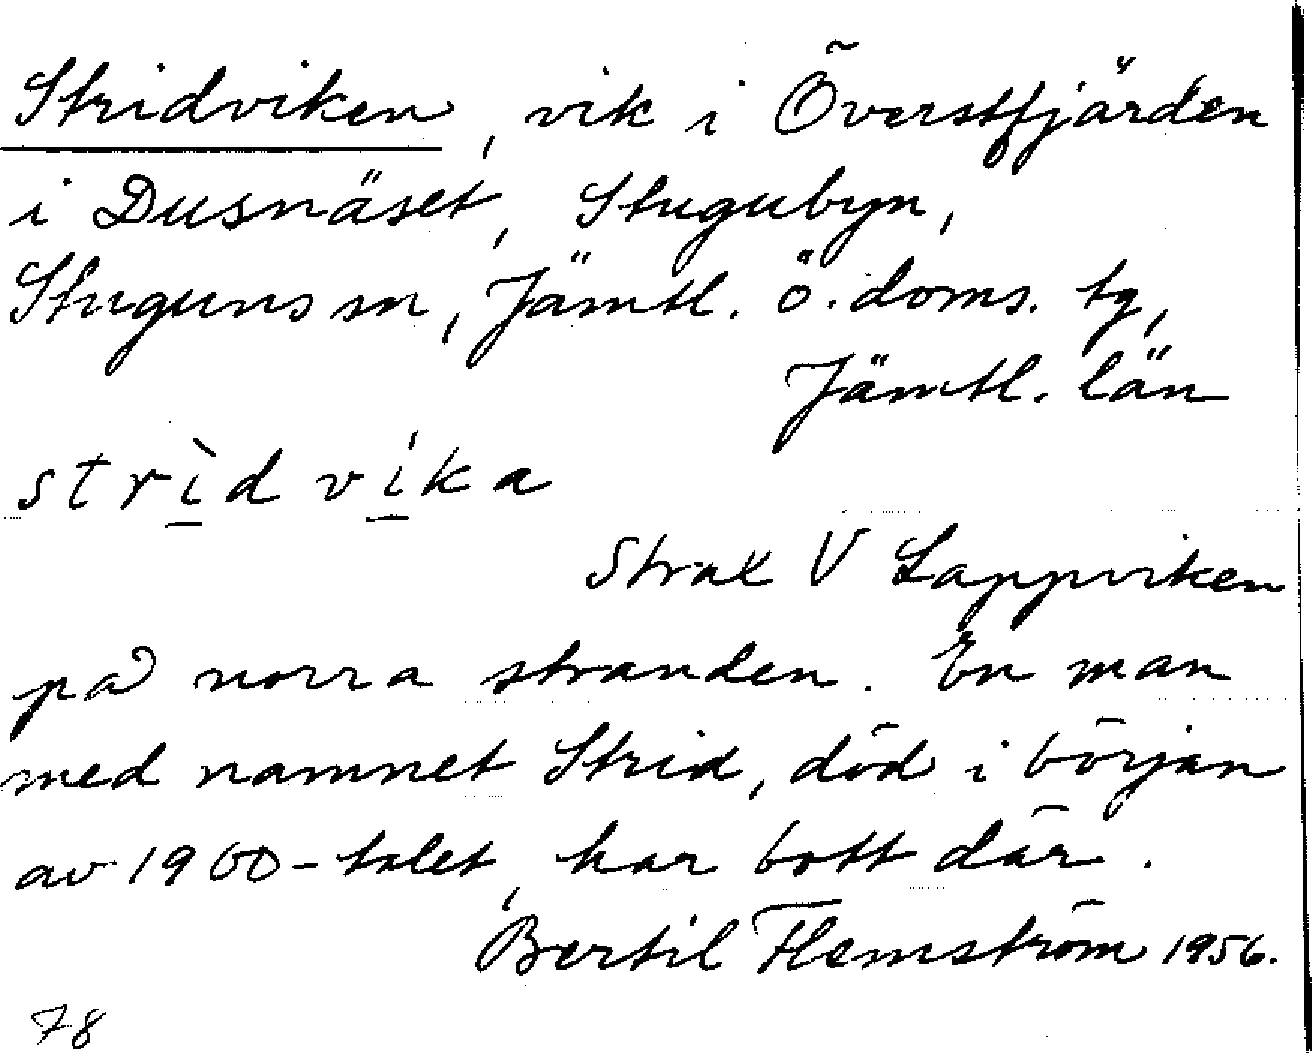 Stridviken, vik i Överstfjärden
i Dusnäset, Stugubyn,
Stuguns sn, Jämtl. ö. doms. tg,
Jämtl. län
strìd víka
Strax V Lappviken
på norra stranden. En man
med namnet Strid, död i början
av 1900-talet, har bott där.
Bertil Flemström 1956.
78